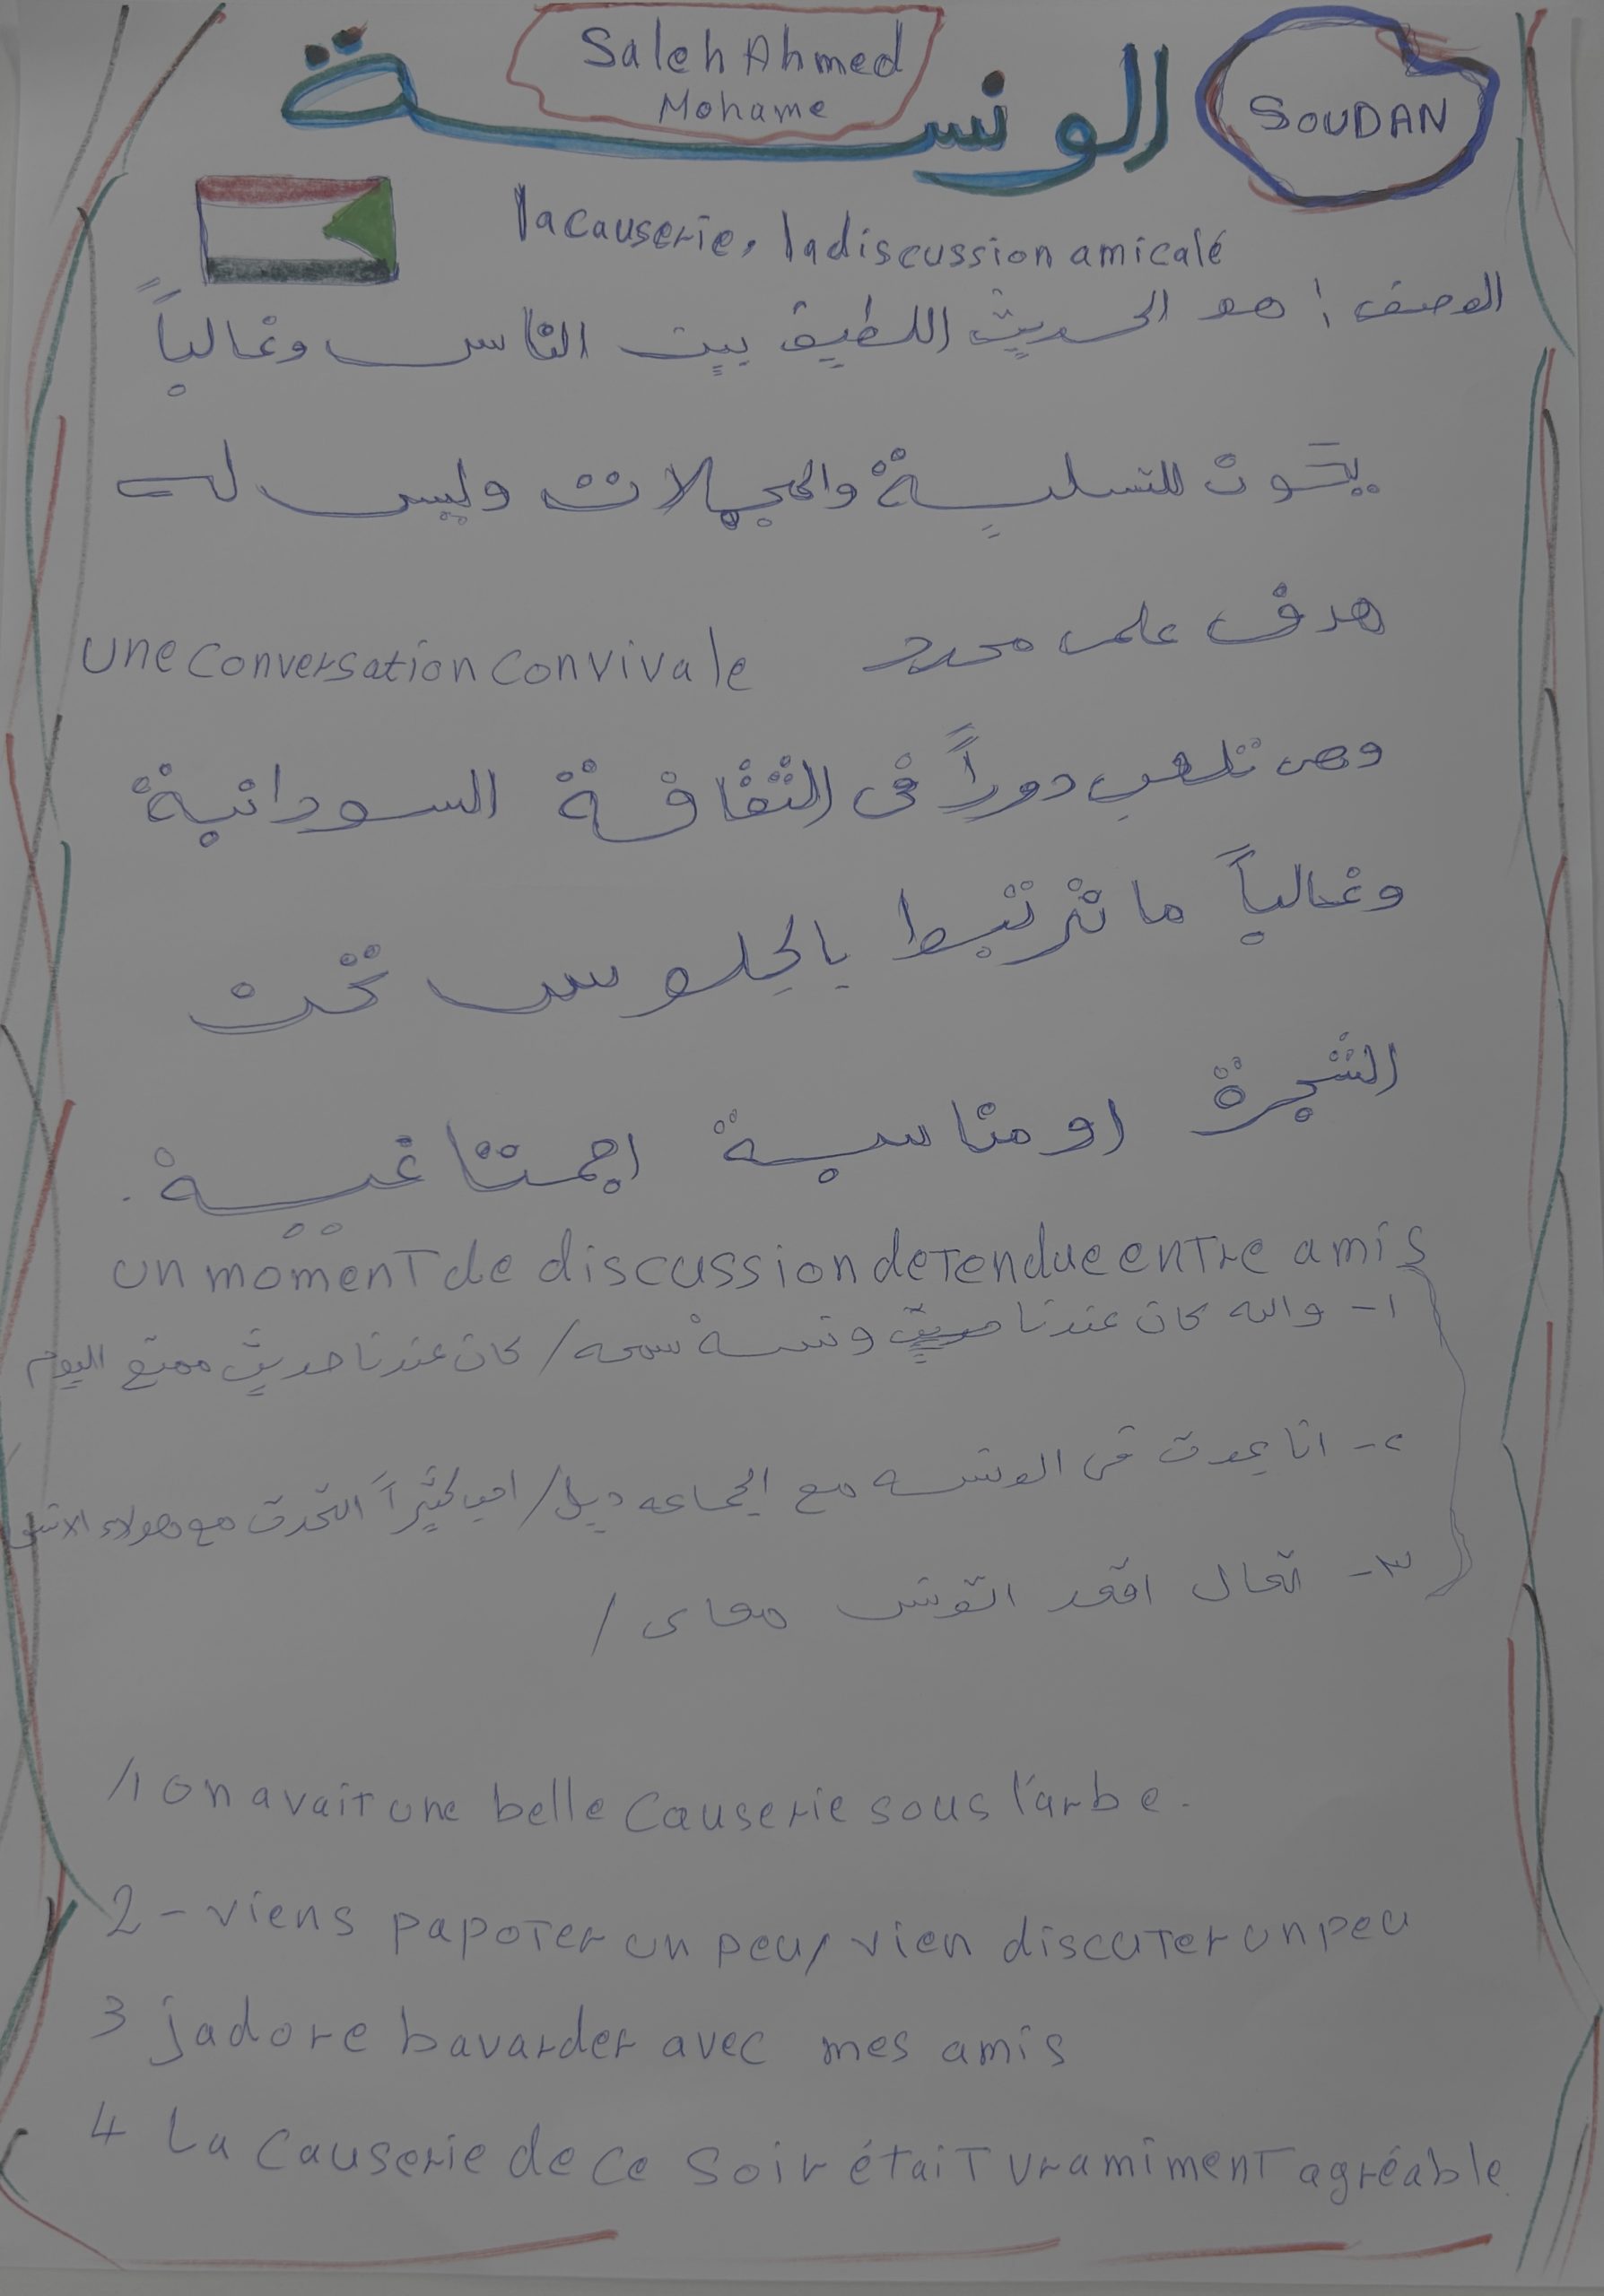 Saleh Ahmed
Mohame
الونسة
SOUDAN
la causerie, la discussion amicalé
الوصف : هو الحديث اللطيف بين الناس وغالباً
يكون للتسلية والمجملات وليس له
هدف علمى محدد
une conversation convivale
وهى تلعب دوراً فى الثقافة السودانية
وغالباً ما ترتبط بالجلوس تحت
الشجرة او مناسبة اجمتاغية.
un moment de discussion detendue entre amis
١- والله كان عندنا ونسة سمحه / كان عندنا حديث ممتع اليوم
٢- انا بموت فى الونسه مع الجماعه ديل / احب كثيراً التحدث مع هولاء
٣- تعال اقعد اتونس معاى /
/1 on avait une belle causerie sous l'arbe.
2 - viens papoter un peu, vien discuter un peu
3 jadore bavarder avec mes amis
4 La causerie de ce soir était vramiment agréable.